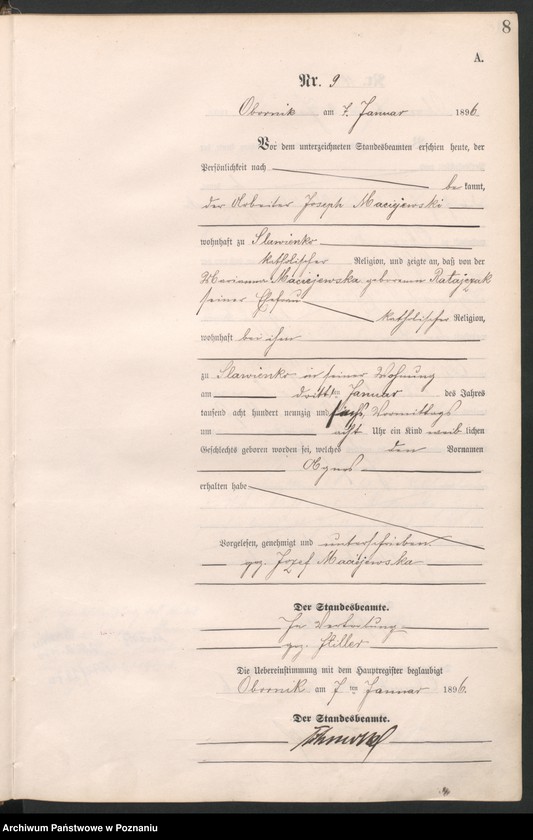 8
A.
Nr. 9
Obornik am 7. Januar 1896.
Vor dem unterzeichneten Standesbeamten erschien heute, der
Persönlichkeit nach
bekannt,
der Arbeiter Joseph Maciejewski
wohnhaft zu Slawienko
katholischer Religion, und zeigte an, daß von der
Marianna Maciejewska geborenen Ratajczak
seiner Ehefrau
katholischer Religion,
wohnhaft bei ihm
zu Slawienko in seiner Wohnung
am dritten Januar des Jahres
tausend acht hundert neunzig und sechs, Vormittags
um acht Uhr ein Kind weiblichen
Geschlechts geboren worden sei, welches den Vornamen
Agnes
erhalten habe
Vorgelesen, genehmigt und unterschrieben
gez. Jozef Maciejewska
Der Standesbeamte.
In Vertretung
gez. Stiller
Die Uebereinstimmung mit dem Hauptregister beglaubigt
Obornik am 7ten Januar 1896.
Der Standesbeamte.
Archiwum Państwowe w Poznaniu